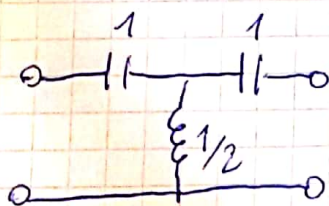 1 1
1/2